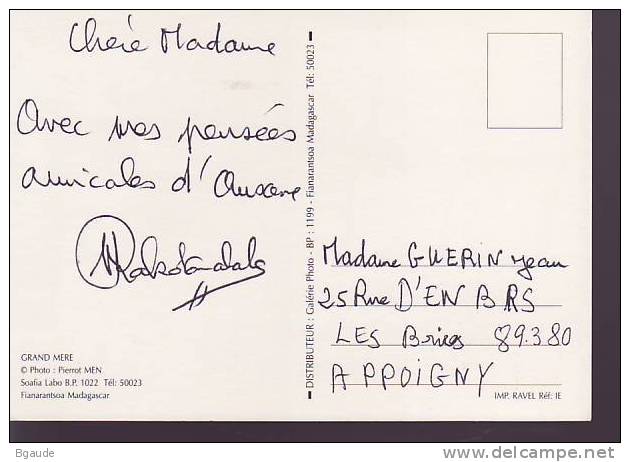 Chère Madame
Avec mes pensées
amicales d'Auxerre
GRAND MERE
© Photo : Pierrot MEN
Soafia Labo B.P. 1022 Tél: 50023
Fianarantsoa Madagascar
DISTRIBUTEUR : Galérie Photo - BP : 1199 - Fianarantsoa Madagascar Tél: 50023
Madame GUERIN Jean
25 Rue D'EN BAS
LES Bries 89.380
APPOIGNY
IMP. RAVEL Réf: IE
Bgaude
delcampe.net